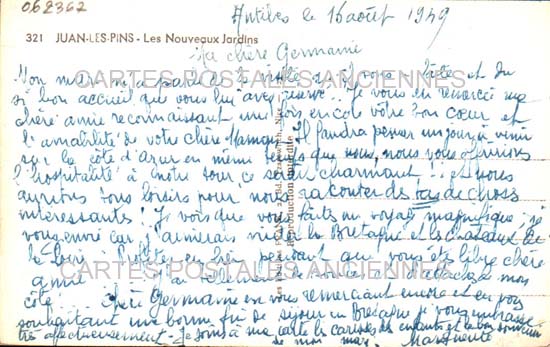 062362
Antibes le 16 août 1949
321 JUAN-LES-PINS - Les Nouveaux Jardins
Ma chère Germaine
Mon mari m'a parlé de la visite et du
si bon accueil que vous lui avez réservé. Je vous en remercie ma
chère amie reconnaissant une fois encore votre bon cœur et
l'amabilité de votre chère Maman. Il faudra penser un jour à venir
sur la côte d'azur en même temps que nous, nous vous offririons
l'hospitalité à notre tour ce serait charmant! et nous
aurions tous loisirs pour nous raconter des tas de choses
intéressantes! Je vois que vous faites un voyage magnifique; je
vous envie car j'aimerais visiter la Bretagne et les châteaux de
la Loire. Profitez en bien pendant que vous êtes libre chère
amie
côté. Chère Germaine en vous remerciant encore et en vous
souhaitant une bonne fin de séjour en Bretagne je vous embrasse
très affectueusement. Je joins à ma carte les caresses des enfants et le bon souvenir
de mon mari. Marguerite
CARTES POSTALES ANCIENNES
CARTES POSTALES ANCIENNES
CARTES POSTALES ANCIENNES
Reproduction interdite